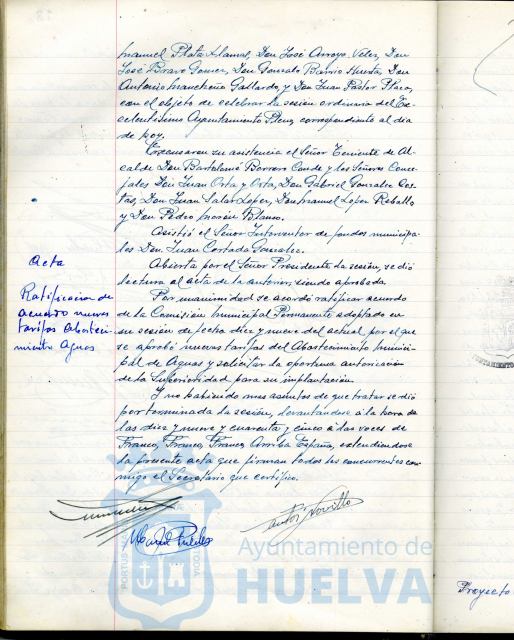 Manuel Plata Alamo, Don José Arroyo Velez, Don
José Bravo Gomez, Don Gonzalo Barrio Huesta, Don
Antonio Mancheño Gallardo, y Don Juan Pastor
con el objeto de celebrar la sesión ordinaria del Ex-
celentísimo Ayuntamiento Pleno, correspondiente al dia
de hoy.
Excusaron su asistencia el Señor Teniente de Al-
calde Don Bartolomé Borrero Conde y los Señores Conce-
jales Don Juan Orta y Orta, Don Gabriel Gonzalez
Don Juan Salas Lopez, Don Manuel Lopez Rebollo
y Don Pedro Morón Blanco.
Asistió el Señor Interventor de fondos municipa-
les Don Juan Cortada Gonzalez.
Acta
Abierta por el Señor Presidente la sesión, se dió
lectura al acta de la anterior, siendo aprobada.
Ratificacion de
acuerdo nuevas
tarifas Abasteci-
miento Aguas
Por unanimidad se acordó ratificar acuerdo
de la Comisión Municipal Permanente adoptado en
su sesión de fecha diez y nueve del actual, por el que
se aprobó nuevas tarifas del Abastecimiento munici-
pal de Aguas y solicitar la oportuna autorización
de la Superioridad para su implantación.
Y no habiendo mas asuntos de que tratar se dió
por terminada la sesión, levantandose a la hora de
las diez y nueve y cuarenta y cinco a las voces de
Franco, Franco, Franco, Arriba España, extendiendose
la presente acta que firman todos los concurrentes con-
migo el Secretario que certifico.
Ayuntamiento de
HUELVA
Proyecto